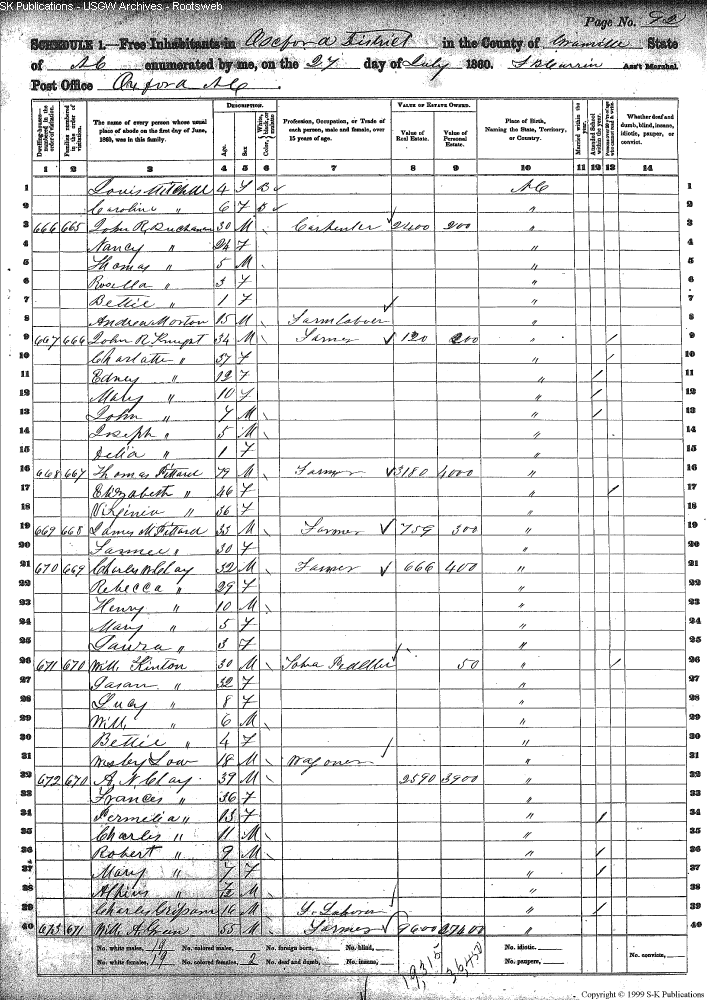 SK Publications - USGW Archives - Rootsweb
Page No. 92
SCHEDULE 1.—Free Inhabitants in Oxford District in the County of Granville State
of NC enumerated by me, on the 27 day of July 1860. Ass't Marshal.
Post Office Oxford NC
Dwelling-houses— numbered in the order of visitation.
Families numbered in the order of visitation.
The name of every person whose usual place of abode on the first day of June, 1860, was in this family.
DESCRIPTION.
Age.
Sex
Color, White, black, or mulatto
Profession, Occupation, or Trade of each person, male and female, over 15 years of age.
VALUE OF ESTATE OWNED.
Value of Real Estate.
Value of Personal Estate.
Place of Birth, Naming the State, Territory, or Country.
Married within the year.
Attended School within the year.
Persons over 20 y'rs of age who cannot read & write.
Whether deaf and dumb, blind, insane, idiotic, pauper, or convict.
1 2 3 4 5 6 7 8 9 10 11 12 13 14
1 Louis Mitchell 4 B ✓ NC 1
2 Caroline " 6 F B ✓ " 2
3 666 665 John R Buchanan 30 M Carpenter 2400 200 " 3
4 Nancy " 24 F " 4
5 Thomas " 5 M " 5
6 Rosella " 3 F " 6
7 Bettie " 1 F " 7
8 Andrew Morton 15 M Farm labour " 8
9 667 666 John R Knight 34 M Farmer 120 200 " / 9
10 Charlotte " 37 F " / 10
11 Edney " 12 F " / 11
12 Mary " 10 F " / 12
13 John " 7 M " / 13
14 Joseph " 5 M " 14
15 Delia " 1 F " 15
16 668 667 Thomas Pittard 79 M Farmer 3180 4000 " 16
17 Elizabeth " 46 F " / 17
18 Virginia " 36 F " 18
19 669 668 James M Pittard 33 M Farmer 759 300 " 19
20 " 30 F " 20
21 670 669 Charles W Clay 32 M Farmer 666 400 " 21
22 Rebecca " 29 F " 22
23 Henry " 10 M " 23
24 Mary " 5 F " 24
25 Laura " 3 F " 25
26 671 670 Will. Hinton 30 M Toba Peddler 50 " / 26
27 " 32 F " 27
28 Lucy " 8 F " 28
29 Will. " 6 M " 29
30 Bettie " 4 F " 30
31 Wesley Low 18 M Wagoner " 31
32 672 670 A. N. Clay 39 M 2590 3900 " 32
33 Frances " 36 F " 33
34 Permelia " 13 F " / 34
35 Charles " 11 M " 35
36 Robert " 9 M " / 36
37 Mary " 7 F " / 37
38 " M " 38
39 Charles Grissom 16 M F. Laborer " / 39
40 673 671 Will. A. 55 M Farmer 9600 27400 " 40
No. white males, 19 No. colored males, No. foreign born, No. blind, No. idiotic, No. convicts,
No. white females, 19 No. colored females, 2 No. deaf and dumb, No. insane, No. paupers,
19315 36,450
Copyright © 1999 S-K Publications